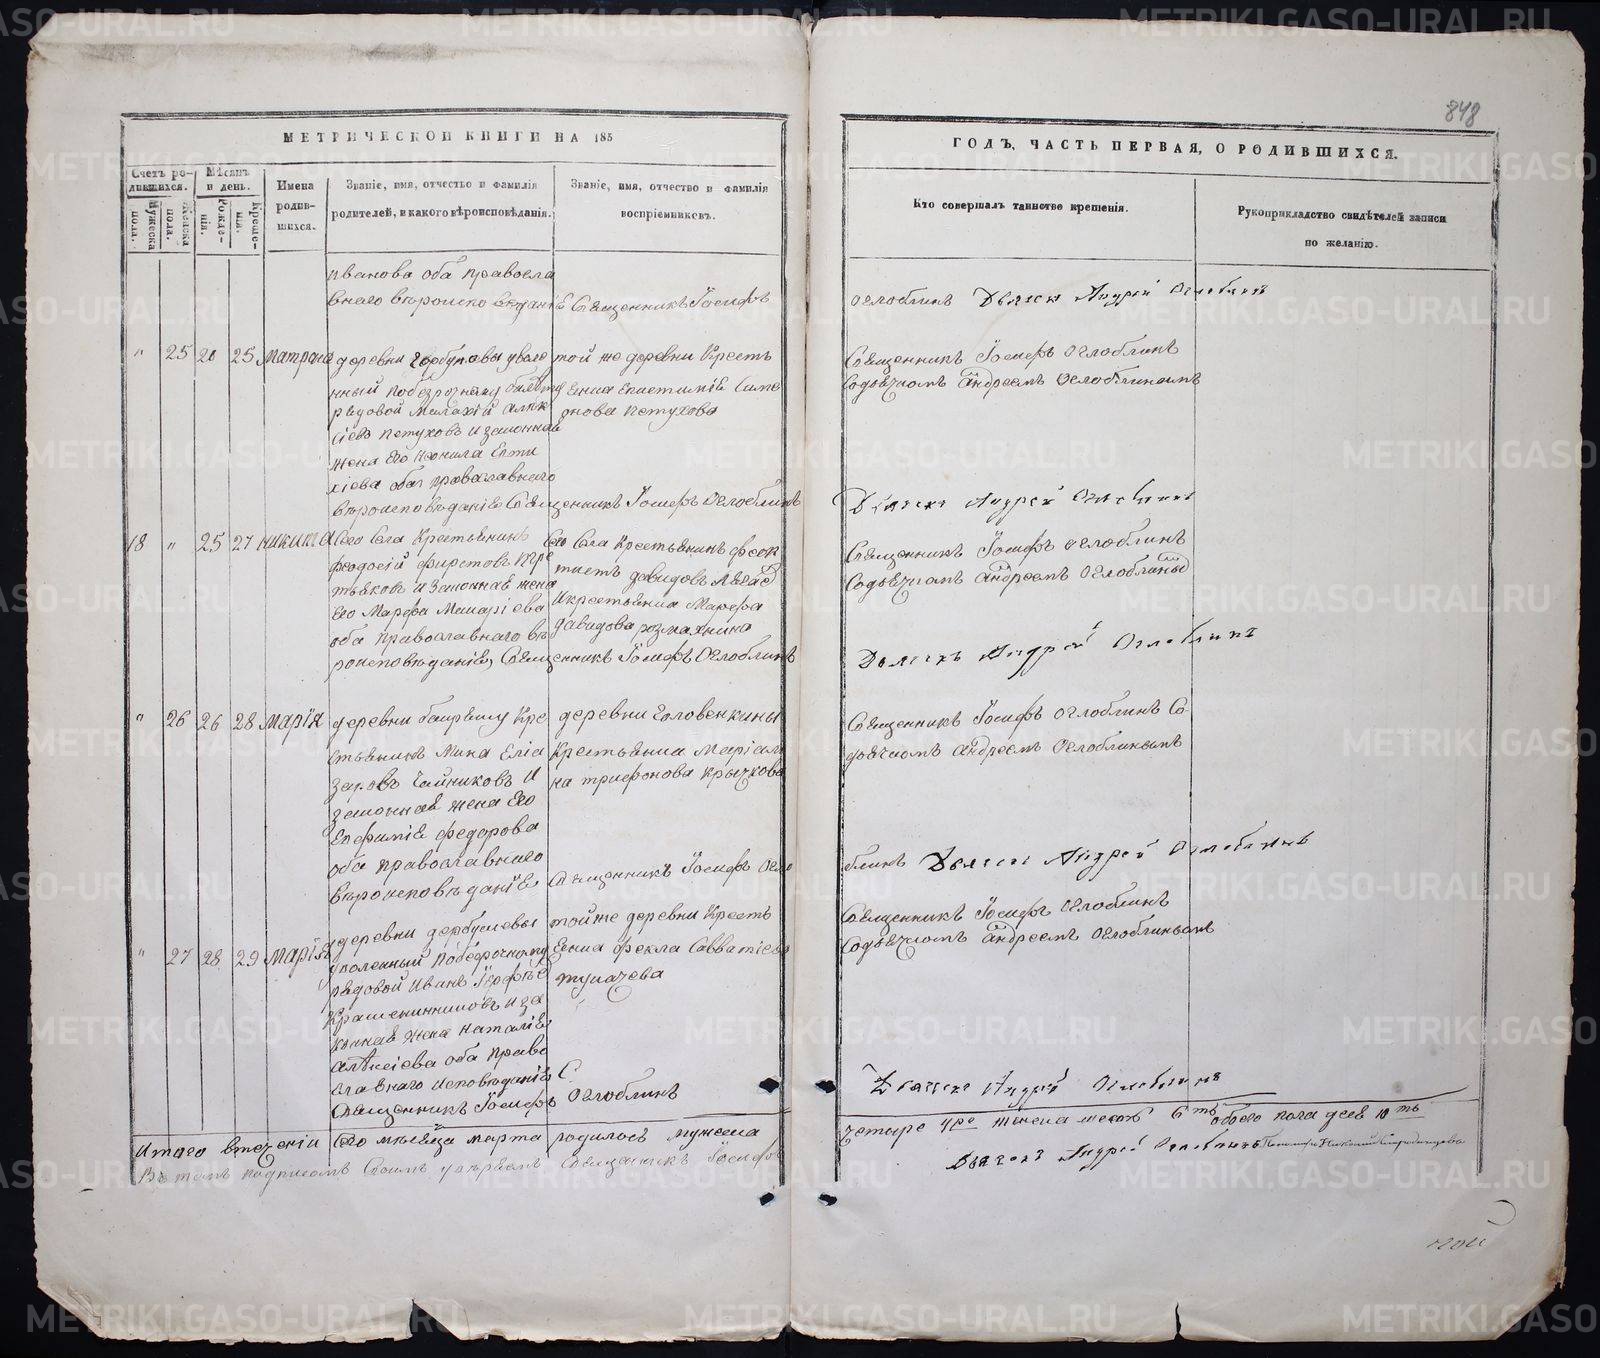 848
МЕТРИЧЕСКОЙ КНИГИ НА 185
ГОДЪ, ЧАСТЬ ПЕРВАЯ, О РОДИВШИХСЯ.
Счетъ ро-
дившихся.
Мужеска
пола.
Женска
пола.
Мѣсяцъ
и день.
Рожде-
нія.
Креще-
нія.
Имена
родив-
шихся.
Званіе, имя, отчество и фамилія
родителей, и какого вѣроисповѣданія.
Званіе, имя, отчество и фамилія
воспріемниковъ.
Кто совершалъ таинство крещенія.
Рукоприкладство свидѣтелей записи
по желанію.
Иванова оба православ
внаго вѣроисповѣданіе Священникъ Іосифъ
Оглоблинъ Дьячекъ Андрей Оглоблинъ
" 25 20 25 Матрона
деревни Горбуновы уволе
нный по безсрочному билету
рядовой Малахій Алек
сіевъ Петуховъ и законная
жена Его Неонила Евти
хіева оба православнаго
вѣроисповѣданіе Священникъ Іосифъ Оглоблинъ
той же деревни Кресть
янка Епистимія Симе
онова Петухова
Священникъ Іосифъ Оглоблинъ
Содьячкомъ Андреемъ Оглоблинымъ
Дьячекъ Андрей Оглоблинъ
18 " 25 27 Никита
Сего Села Крестьянинъ
Феодосій Фирстовъ
и Законная жена
Его Марфа Макаріева
оба православнаго вѣ
роисповѣданіе, Священникъ Іосифъ Оглоблинъ
Сего Села Крестьянинъ Феок
тистъ Давидовъ
и крестьянка Марфа
Давидова
Священникъ Іосифъ Оглоблинъ
Содьячкомъ Андреемъ Оглоблинымъ
Дьячекъ Андрей Оглоблинъ
" 26 26 28 Марія
деревни Кре
стьянинъ Мина Еліа
заровъ Чайниковъ и
законная жена Его
Евфимія Федорова
оба православнаго
вѣроисповѣданіе Священникъ Іосифъ Огло
деревни Головенкины
Крестьянка Маріам
на Трифонова Крычкова
Священникъ Іосифъ Оглоблинъ Со
дьячкомъ Андреемъ Оглоблинымъ
блинъ Дьячекъ Андрей Оглоблинъ
" 27 28 29 Марія
деревни
уволенный по безсрочному
рядовой Иванъ
Крашенинниковъ и за
конная жена Наталія
Алексіева оба право
славнаго исповѣданіе С.
Священникъ Іосифъ Оглоблинъ
той же деревни Кресть
янка Фекла Савватіева
Тукачева
Священникъ Іосифъ Оглоблинъ
Содьячкомъ Андреемъ Оглоблинымъ
Дьячекъ Андрей Оглоблинъ
Итого втеченіи Сего мѣсяца марта родилось мужеска
четыре женска 6ть обоего пола 10ть
В томъ подписомъ Своимъ Священникъ Іосифъ
Дьячекъ Андрей Оглоблинъ Пономарь
METRIKI.GASO-URAL.RU